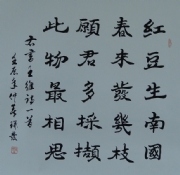 紅豆生南國
春來發幾枝
願君多採擷
此物最相思
右書王維詩一首
年仲